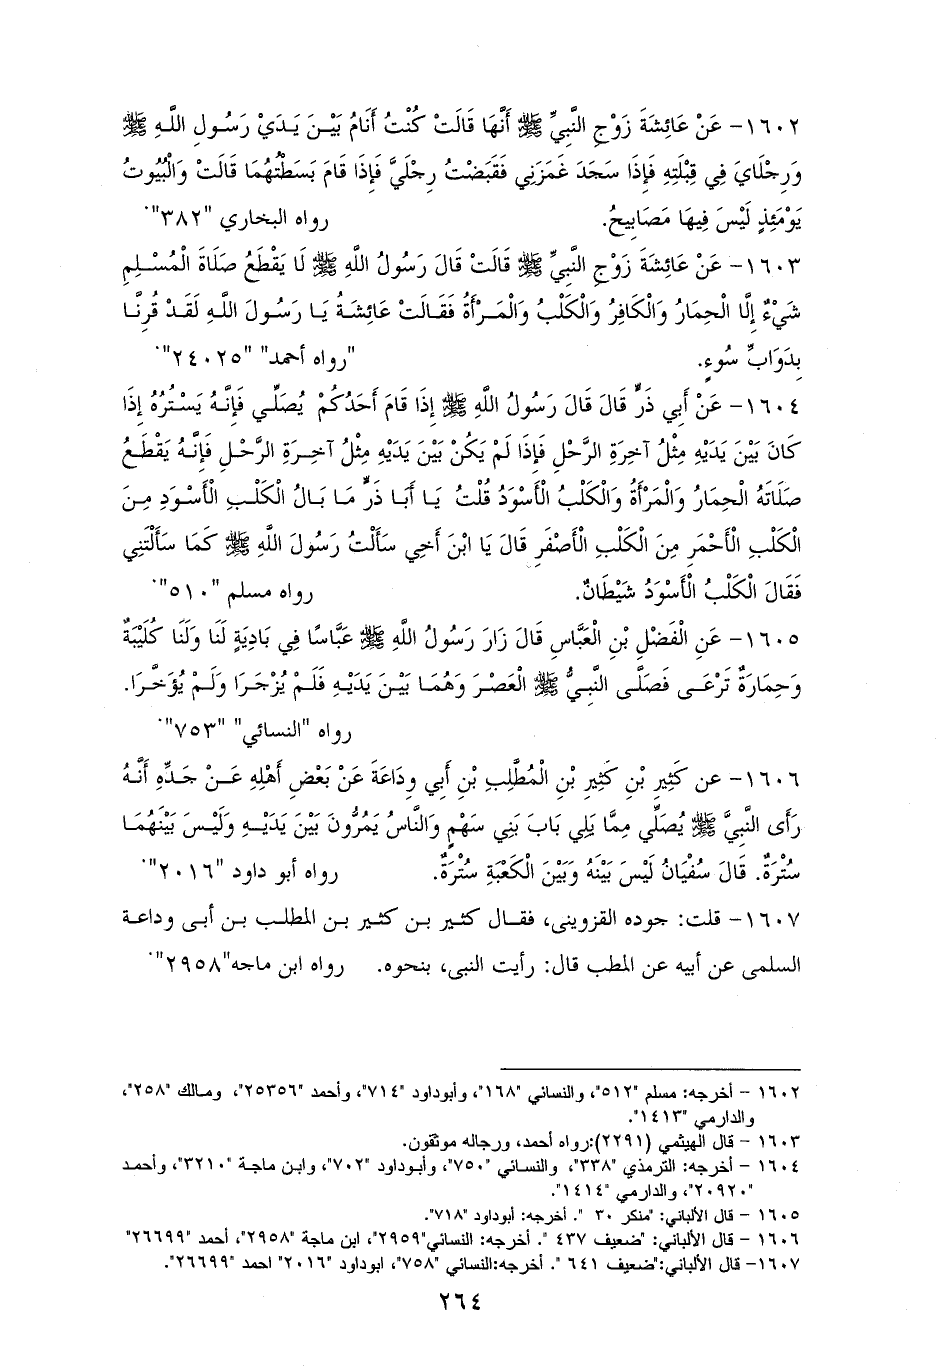 ١٦٠٢- عَنْ عَائِشَةَ زَوْجِ النَّبِيِّ ﷺ أَنَّهَا قَالَتْ كُنْتُ أَنَامُ بَيْنَ يَدَيْ رَسُولِ اللَّهِ ﷺ
وَرِجْلَايَ فِي قِبْلَتِهِ فَإِذَا سَجَدَ غَمَزَنِي فَقَبَضْتُ رِجْلَيَّ فَإِذَا قَامَ بَسَطْتُهُمَا قَالَتْ وَالْبُيُوتُ
يَوْمَئِذٍ لَيْسَ فِيهَا مَصَابِيحُ. رواه البخاري "٣٨٢".
١٦٠٣- عَنْ عَائِشَةَ زَوْجِ النَّبِيِّ ﷺ قَالَتْ قَالَ رَسُولُ اللَّهِ ﷺ لَا يَقْطَعُ صَلَاةَ الْمُسْلِمِ
شَيْءٌ إِلَّا الْحِمَارُ وَالْكَافِرُ وَالْكَلْبُ وَالْمَرْأَةُ فَقَالَتْ عَائِشَةُ يَا رَسُولَ اللَّهِ لَقَدْ قُرِنَّا
بِدَوَابِّ سُوءٍ. "رواه أحمد" "٢٤٠٢٥".
١٦٠٤- عَنْ أَبِي ذَرٍّ قَالَ قَالَ رَسُولُ اللَّهِ ﷺ إِذَا قَامَ أَحَدُكُمْ يُصَلِّي فَإِنَّهُ يَسْتُرُهُ إِذَا
كَانَ بَيْنَ يَدَيْهِ مِثْلُ آخِرَةِ الرَّحْلِ فَإِذَا لَمْ يَكُنْ بَيْنَ يَدَيْهِ مِثْلُ آخِرَةِ الرَّحْلِ فَإِنَّهُ يَقْطَعُ
صَلَاتَهُ الْحِمَارُ وَالْمَرْأَةُ وَالْكَلْبُ الْأَسْوَدُ قُلْتُ يَا أَبَا ذَرٍّ مَا بَالُ الْكَلْبِ الْأَسْوَدِ مِنَ
الْكَلْبِ الْأَحْمَرِ مِنَ الْكَلْبِ الْأَصْفَرِ قَالَ يَا ابْنَ أَخِي سَأَلْتُ رَسُولَ اللَّهِ ﷺ كَمَا سَأَلْتَنِي
فَقَالَ الْكَلْبُ الْأَسْوَدُ شَيْطَانٌ. رواه مسلم "٥١٠".
١٦٠٥- عَنِ الْفَضْلِ بْنِ الْعَبَّاسِ قَالَ زَارَ رَسُولُ اللَّهِ ﷺ عَبَّاسًا فِي بَادِيَةٍ لَنَا وَلَنَا كُلَيْبَةٌ
وَحِمَارَةٌ تَرْعَى فَصَلَّى النَّبِيُّ ﷺ الْعَصْرَ وَهُمَا بَيْنَ يَدَيْهِ فَلَمْ يُزْجَرَا وَلَمْ يُؤَخَّرَا.
رواه "النسائي" "٧٥٣".
١٦٠٦- عن كَثِيرِ بْنِ كَثِيرِ بْنِ الْمُطَّلِبِ بْنِ أَبِي وِدَاعَةَ عَنْ بَعْضِ أَهْلِهِ عَنْ جَدِّهِ أَنَّهُ
رَأَى النَّبِيَّ ﷺ يُصَلِّي مِمَّا يَلِي بَابَ بَنِي سَهْمٍ وَالنَّاسُ يَمُرُّونَ بَيْنَ يَدَيْهِ وَلَيْسَ بَيْنَهُمَا
سُتْرَةٌ. قَالَ سُفْيَانُ لَيْسَ بَيْنَهُ وَبَيْنَ الْكَعْبَةِ سُتْرَةٌ. رواه أبو داود "٢٠١٦".
١٦٠٧- قلت: جوده القزوينى، فقال كثير بن كثير بن المطلب بن أبى وداعة
السلمى عن أبيه عن المطب قال: رأيت النبى، بنحوه. رواه ابن ماجه"٢٩٥٨".
١٦٠٢ - أخرجه: مسلم "٥١٢"، والنسائي "١٦٨"، وأبوداود "٧١٤"، وأحمد "٢٥٣٥٦"، ومالك "٢٥٨"،
والدارمي "١٤١٣".
١٦٠٣ - قال الهيثمي (٢٢٩١):رواه أحمد، ورجاله موثقون.
١٦٠٤ - أخرجه: الترمذي "٣٣٨"، والنسائي "٧٥٠"، وأبوداود "٧٠٢"، وابن ماجة "٣٢١٠"، وأحمد
"٢٠٩٢٠"، والدارمي "١٤١٤".
١٦٠٥ - قال الألباني: "منكر ٣٠ ". أخرجه: أبوداود "٧١٨".
١٦٠٦ - قال الألباني: "ضعيف ٤٣٧ ". أخرجه: النسائي"٢٩٥٩"، ابن ماجة "٢٩٥٨"، أحمد "٢٦٦٩٩"
١٦٠٧- قال الألباني:"ضعيف ٦٤١ ". أخرجه:النسائي "٧٥٨"، ابوداود "٢٠١٦" احمد "٢٦٦٩٩".
٢٦٤